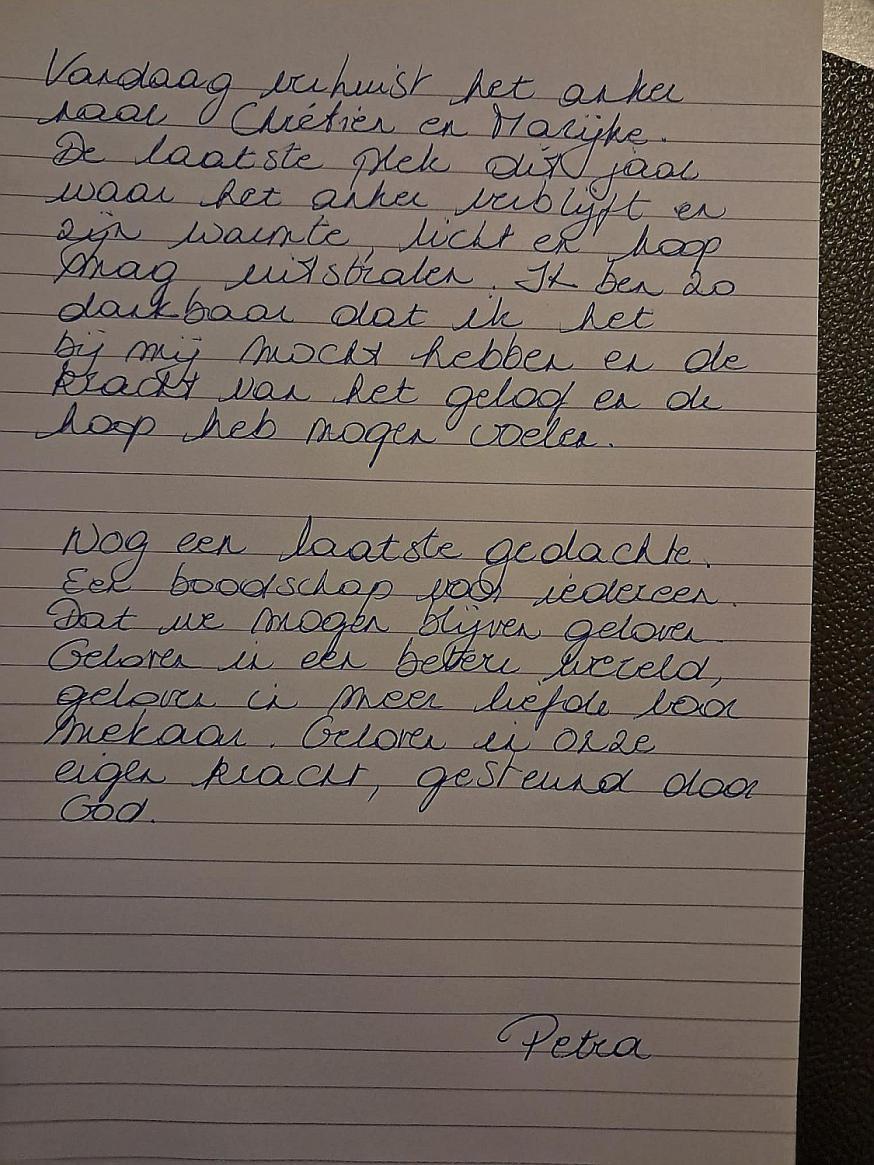 Vandaag verhuist het anker
naar Chrétien en Marijke.
De laatste plek dit jaar
waar het anker verblijft en
zijn warmte, licht en hoop
mag uitstralen. Ik ben zo
dankbaar dat ik het
bij mij mocht hebben en de
kracht van het geloof en de
hoop heb mogen voelen.
Nog een laatste gedachte.
Een boodschap voor iedereen.
Dat we mogen blijven geloven.
Geloven in een betere wereld,
geloven in meer liefde voor
mekaar. Geloven in onze
eigen kracht, gesteund door
God.
Petra